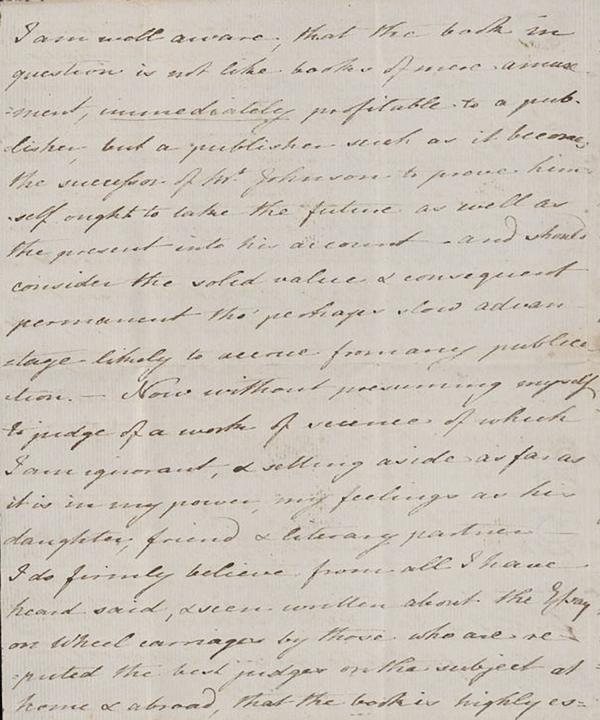 I am well aware, that the book in
question is not like books of mere amuse
-ment, immediately profitable to a pub-
lisher, but a publisher such as it becomes
the successor of Mr. Johnson to prove him
self ought to take the future as well as
the present into his account - and should
consider the solid value & consequent
permanent tho' perhaps slow advan
-tage likely to accrue from any publica
-tion. - Now without presuming myself
to judge of a work of science of which
I am ignorant, & setting aside as far as
it is in my power, my feelings as his
daughter, friend & literary partner -
I do firmly believe from all I have
heard said, & seen written about the Essay
on Wheel carriages by those who are re
-puted the best judges on the subject at
home & abroad, that the book is highly es=